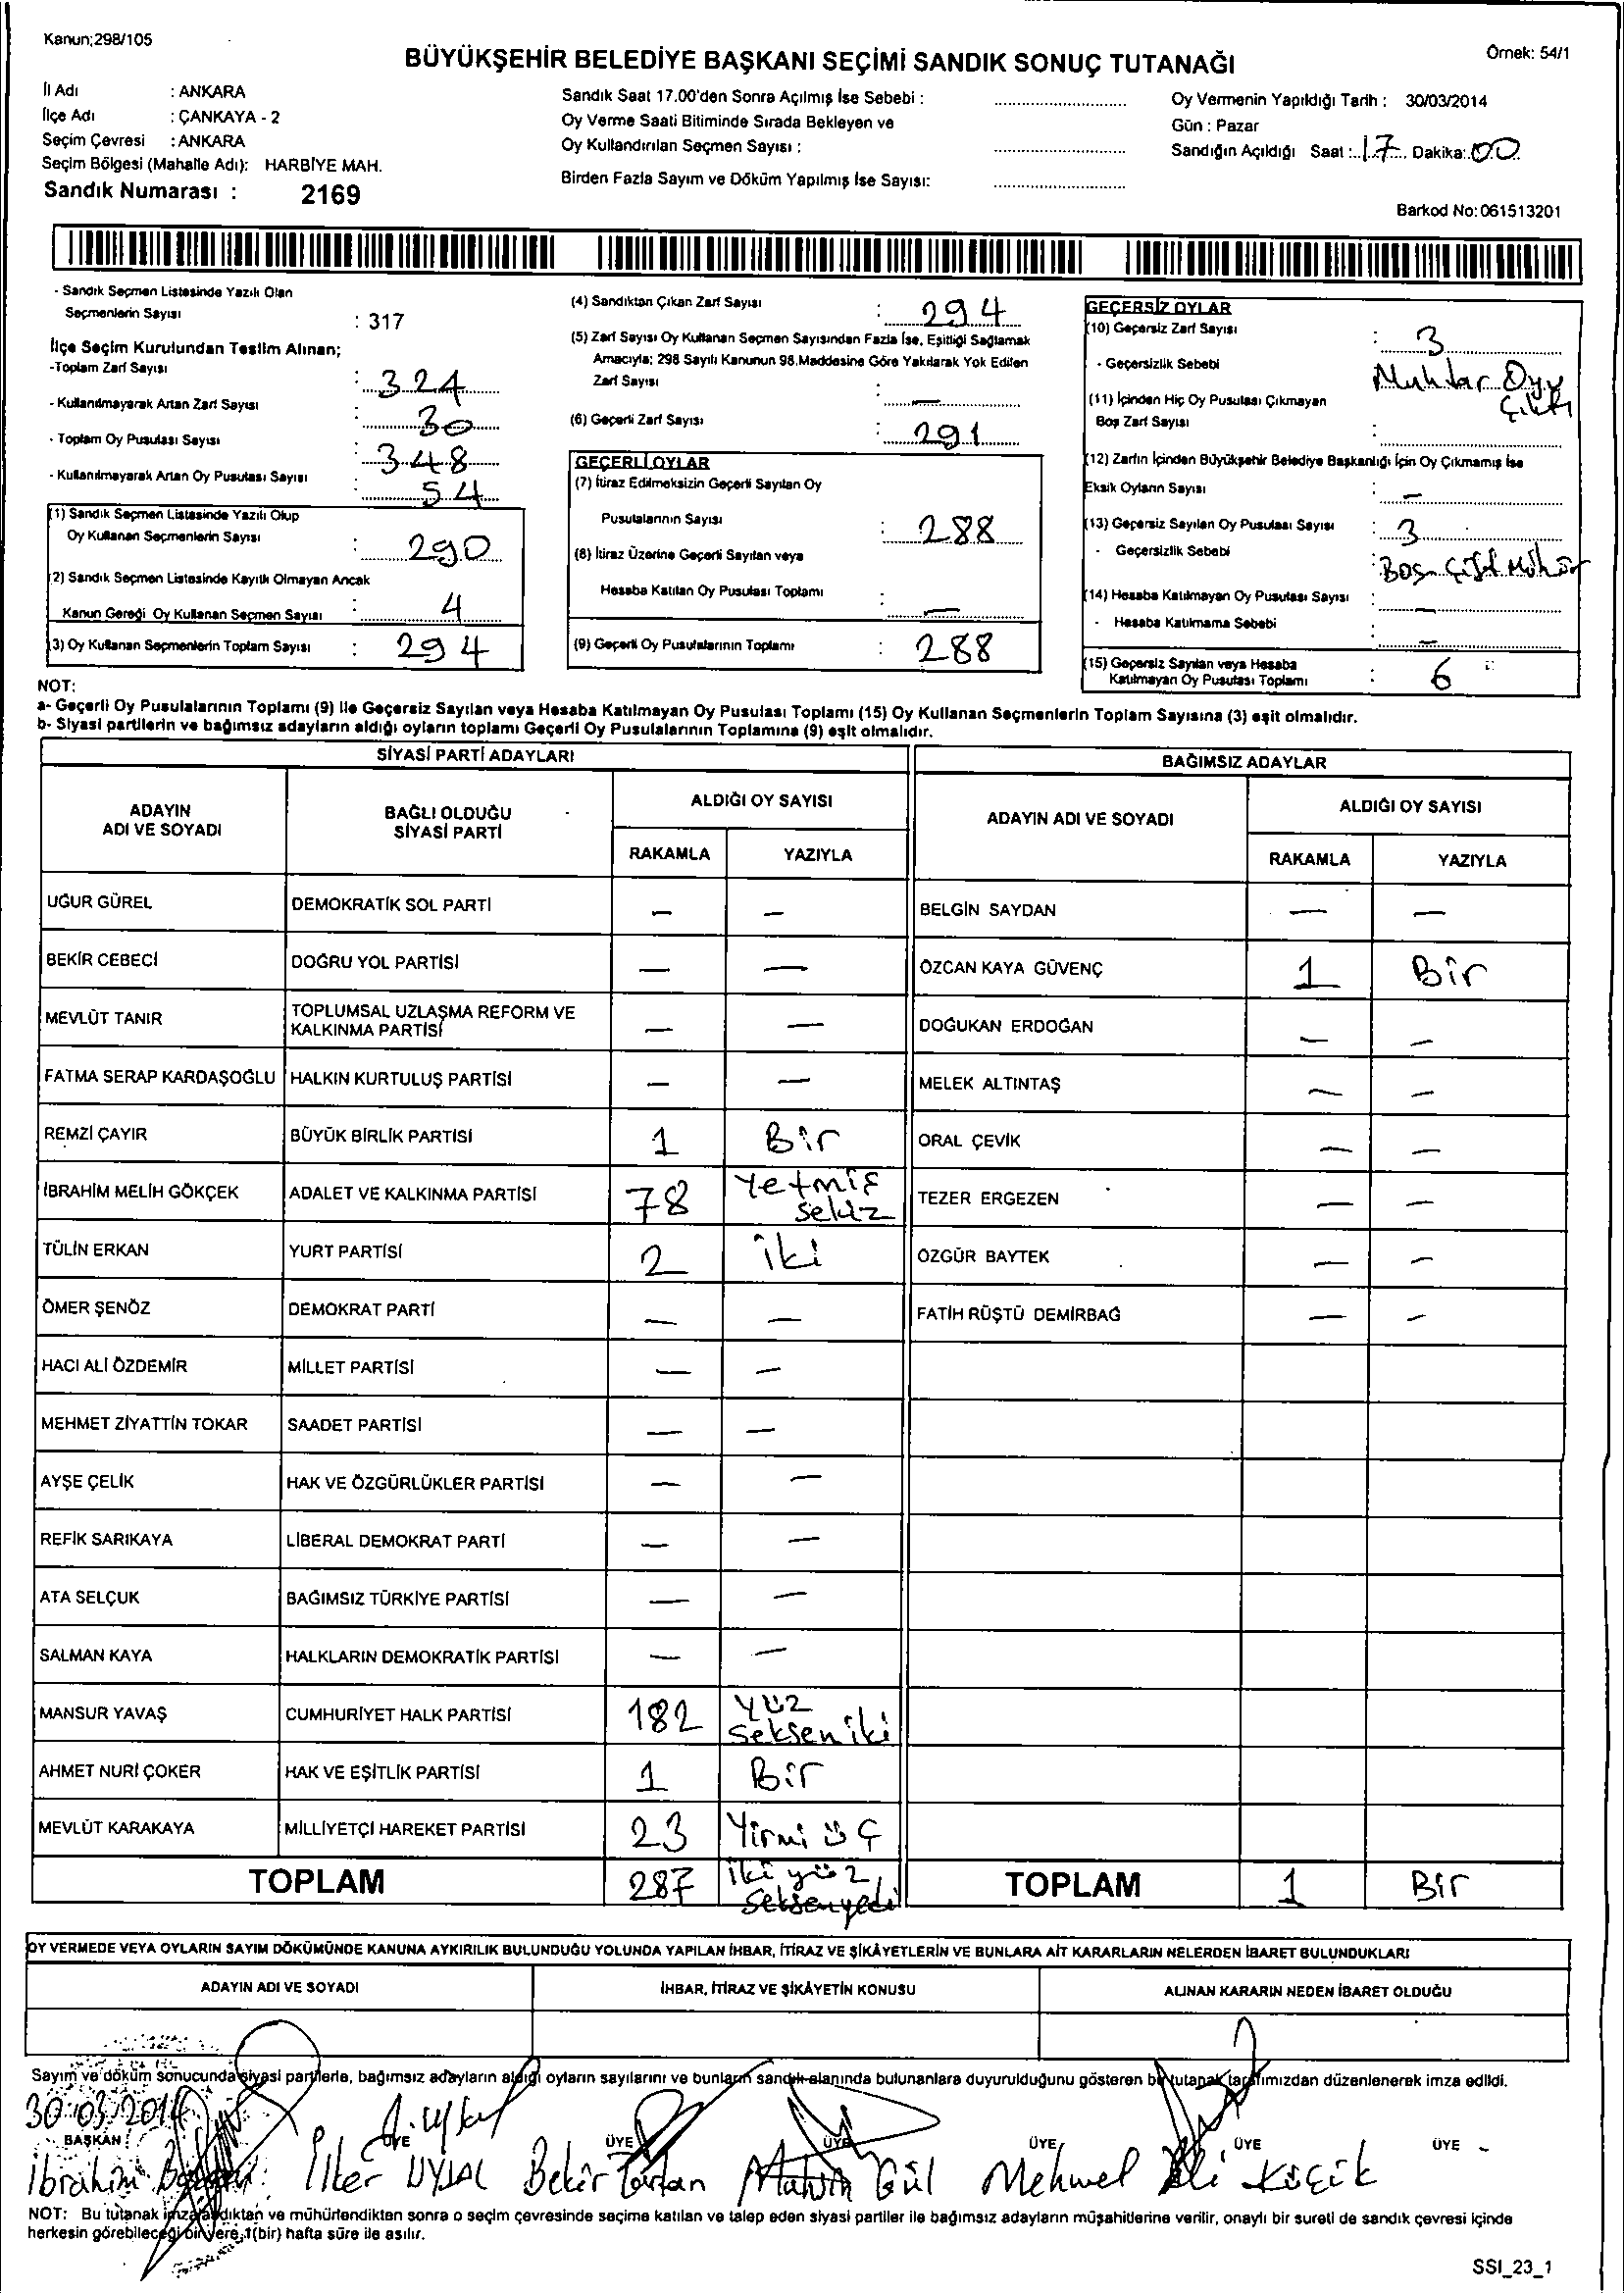 Kanun;298/105
Örnek: 54/1
BÜYÜKŞEHİR BELEDİYE BAŞKANI SEÇİMİ SANDIK SONUÇ TUTANAĞI
İl Adı : ANKARA
İlçe Adı : ÇANKAYA - 2
Seçim Çevresi : ANKARA
Seçim Bölgesi (Mahalle Adı): HARBİYE MAH.
Sandık Numarası : 2169
Sandık Saat 17.00'den Sonra Açılmış İse Sebebi :
Oy Verme Saati Bitiminde Sırada Bekleyen ve
Oy Kullandırılan Seçmen Sayısı :
Birden Fazla Sayım ve Döküm Yapılmış İse Sayısı:
Oy Vermenin Yapıldığı Tarih : 30/03/2014
Gün : Pazar
Sandığın Açıldığı Saat : 17 Dakika: 00
Barkod No:061513201
- Sandık Seçmen Listesinde Yazılı Olan
Seçmenlerin Sayısı : 317
İlçe Seçim Kurulundan Teslim Alınan;
-Toplam Zarf Sayısı : 324
- Kullanılmayarak Artan Zarf Sayısı : 30
- Toplam Oy Pusulası Sayısı : 348
- Kullanılmayarak Artan Oy Pusulası Sayısı : 54
(1) Sandık Seçmen Listesinde Yazılı Olup
Oy Kullanan Seçmenlerin Sayısı : 290
(2) Sandık Seçmen Listesinde Kayıtlı Olmayan Ancak
Kanun Gereği Oy Kullanan Seçmen Sayısı : 4
(3) Oy Kullanan Seçmenlerin Toplam Sayısı : 294
(4) Sandıktan Çıkan Zarf Sayısı : 294
(5) Zarf Sayısı Oy Kullanan Seçmen Sayısından Fazla İse, Eşitliği Sağlamak
Amacıyla; 298 Sayılı Kanunun 98.Maddesine Göre Yakılarak Yok Edilen
Zarf Sayısı : —
(6) Geçerli Zarf Sayısı : 291
GEÇERLİ OYLAR
(7) İtiraz Edilmeksizin Geçerli Sayılan Oy
Pusulalarının Sayısı : 288
(8) İtiraz Üzerine Geçerli Sayılan veya
Hesaba Katılan Oy Pusulası Toplamı : —
(9) Geçerli Oy Pusulalarının Toplamı : 288
GEÇERSİZ OYLAR
(10) Geçersiz Zarf Sayısı : 3
- Geçersizlik Sebebi : Muhtar Oyu
Çıktı
(11) İçinden Hiç Oy Pusulası Çıkmayan
Boş Zarf Sayısı :
(12) Zarfın İçinden Büyükşehir Belediye Başkanlığı İçin Oy Çıkmamış İse
Eksik Oyların Sayısı : —
(13) Geçersiz Sayılan Oy Pusulası Sayısı : 3
- Geçersizlik Sebebi : Boş Çift Mühür
(14) Hesaba Katılmayan Oy Pusulası Sayısı : —
- Hesaba Katılmama Sebebi : —
(15) Geçersiz Sayılan veya Hesaba
Katılmayan Oy Pusulası Toplamı : 6
NOT:
a- Geçerli Oy Pusulalarının Toplamı (9) ile Geçersiz Sayılan veya Hesaba Katılmayan Oy Pusulası Toplamı (15) Oy Kullanan Seçmenlerin Toplam Sayısına (3) eşit olmalıdır.
b- Siyasi partilerin ve bağımsız adayların aldığı oyların toplamı Geçerli Oy Pusulalarının Toplamına (9) eşit olmalıdır.
SİYASİ PARTİ ADAYLARI
ADAYIN
ADI VE SOYADI
BAĞLI OLDUĞU
SİYASİ PARTİ
ALDIĞI OY SAYISI
RAKAMLA YAZIYLA
UĞUR GÜREL DEMOKRATİK SOL PARTİ — —
BEKİR CEBECİ DOĞRU YOL PARTİSİ — —
MEVLÜT TANIR TOPLUMSAL UZLAŞMA REFORM VE
KALKINMA PARTİSİ — —
FATMA SERAP KARDAŞOĞLU HALKIN KURTULUŞ PARTİSİ — —
REMZİ ÇAYIR BÜYÜK BİRLİK PARTİSİ 1 Bir
İBRAHİM MELİH GÖKÇEK ADALET VE KALKINMA PARTİSİ 78 Yetmiş
sekiz
TÜLİN ERKAN YURT PARTİSİ 2 iki
ÖMER ŞENÖZ DEMOKRAT PARTİ — —
HACI ALİ ÖZDEMİR MİLLET PARTİSİ — —
MEHMET ZİYATTİN TOKAR SAADET PARTİSİ — —
AYŞE ÇELİK HAK VE ÖZGÜRLÜKLER PARTİSİ — —
REFİK SARIKAYA LİBERAL DEMOKRAT PARTİ — —
ATA SELÇUK BAĞIMSIZ TÜRKİYE PARTİSİ — —
SALMAN KAYA HALKLARIN DEMOKRATİK PARTİSİ — —
MANSUR YAVAŞ CUMHURİYET HALK PARTİSİ 182 Yüz
seksen iki
AHMET NURİ ÇOKER HAK VE EŞİTLİK PARTİSİ 1 Bir
MEVLÜT KARAKAYA MİLLİYETÇİ HAREKET PARTİSİ 23 Yirmi üç
TOPLAM 287 iki yüz
seksenyedi
BAĞIMSIZ ADAYLAR
ADAYIN ADI VE SOYADI
ALDIĞI OY SAYISI
RAKAMLA YAZIYLA
BELGİN SAYDAN — —
ÖZCAN KAYA GÜVENÇ 1 Bir
DOĞUKAN ERDOĞAN — —
MELEK ALTINTAŞ — —
ORAL ÇEVİK — —
TEZER ERGEZEN — —
ÖZGÜR BAYTEK — —
FATİH RÜŞTÜ DEMİRBAĞ — —
TOPLAM 1 Bir
OY VERMEDE VEYA OYLARIN SAYIM DÖKÜMÜNDE KANUNA AYKIRILIK BULUNDUĞU YOLUNDA YAPILAN İHBAR, İTİRAZ VE ŞİKÂYETLERİN VE BUNLARA AİT KARARLARIN NELERDEN İBARET BULUNDUKLARI
ADAYIN ADI VE SOYADI İHBAR, İTİRAZ VE ŞİKÂYETİN KONUSU ALINAN KARARIN NEDEN İBARET OLDUĞU
Sayım ve döküm sonucunda siyasi partilerle, bağımsız adayların aldığı oyların sayılarını ve bunların sandık alanında bulunanlara duyurulduğunu gösteren bu tutanak tarafımızdan düzenlenerek imza edildi.
30.03.2014
BAŞKAN ÜYE ÜYE ÜYE ÜYE ÜYE ÜYE
İbrahim İlker UYSAL Bekir Gül Mehmet Ali Küçük
NOT: Bu tutanak imzalandıktan ve mühürlendikten sonra o seçim çevresinde seçime katılan ve talep eden siyasi partiler ile bağımsız adayların müşahitlerine verilir, onaylı bir sureti de sandık çevresi içinde
herkesin görebileceği bir yere,1(bir) hafta süre ile asılır.
SSI_23_1